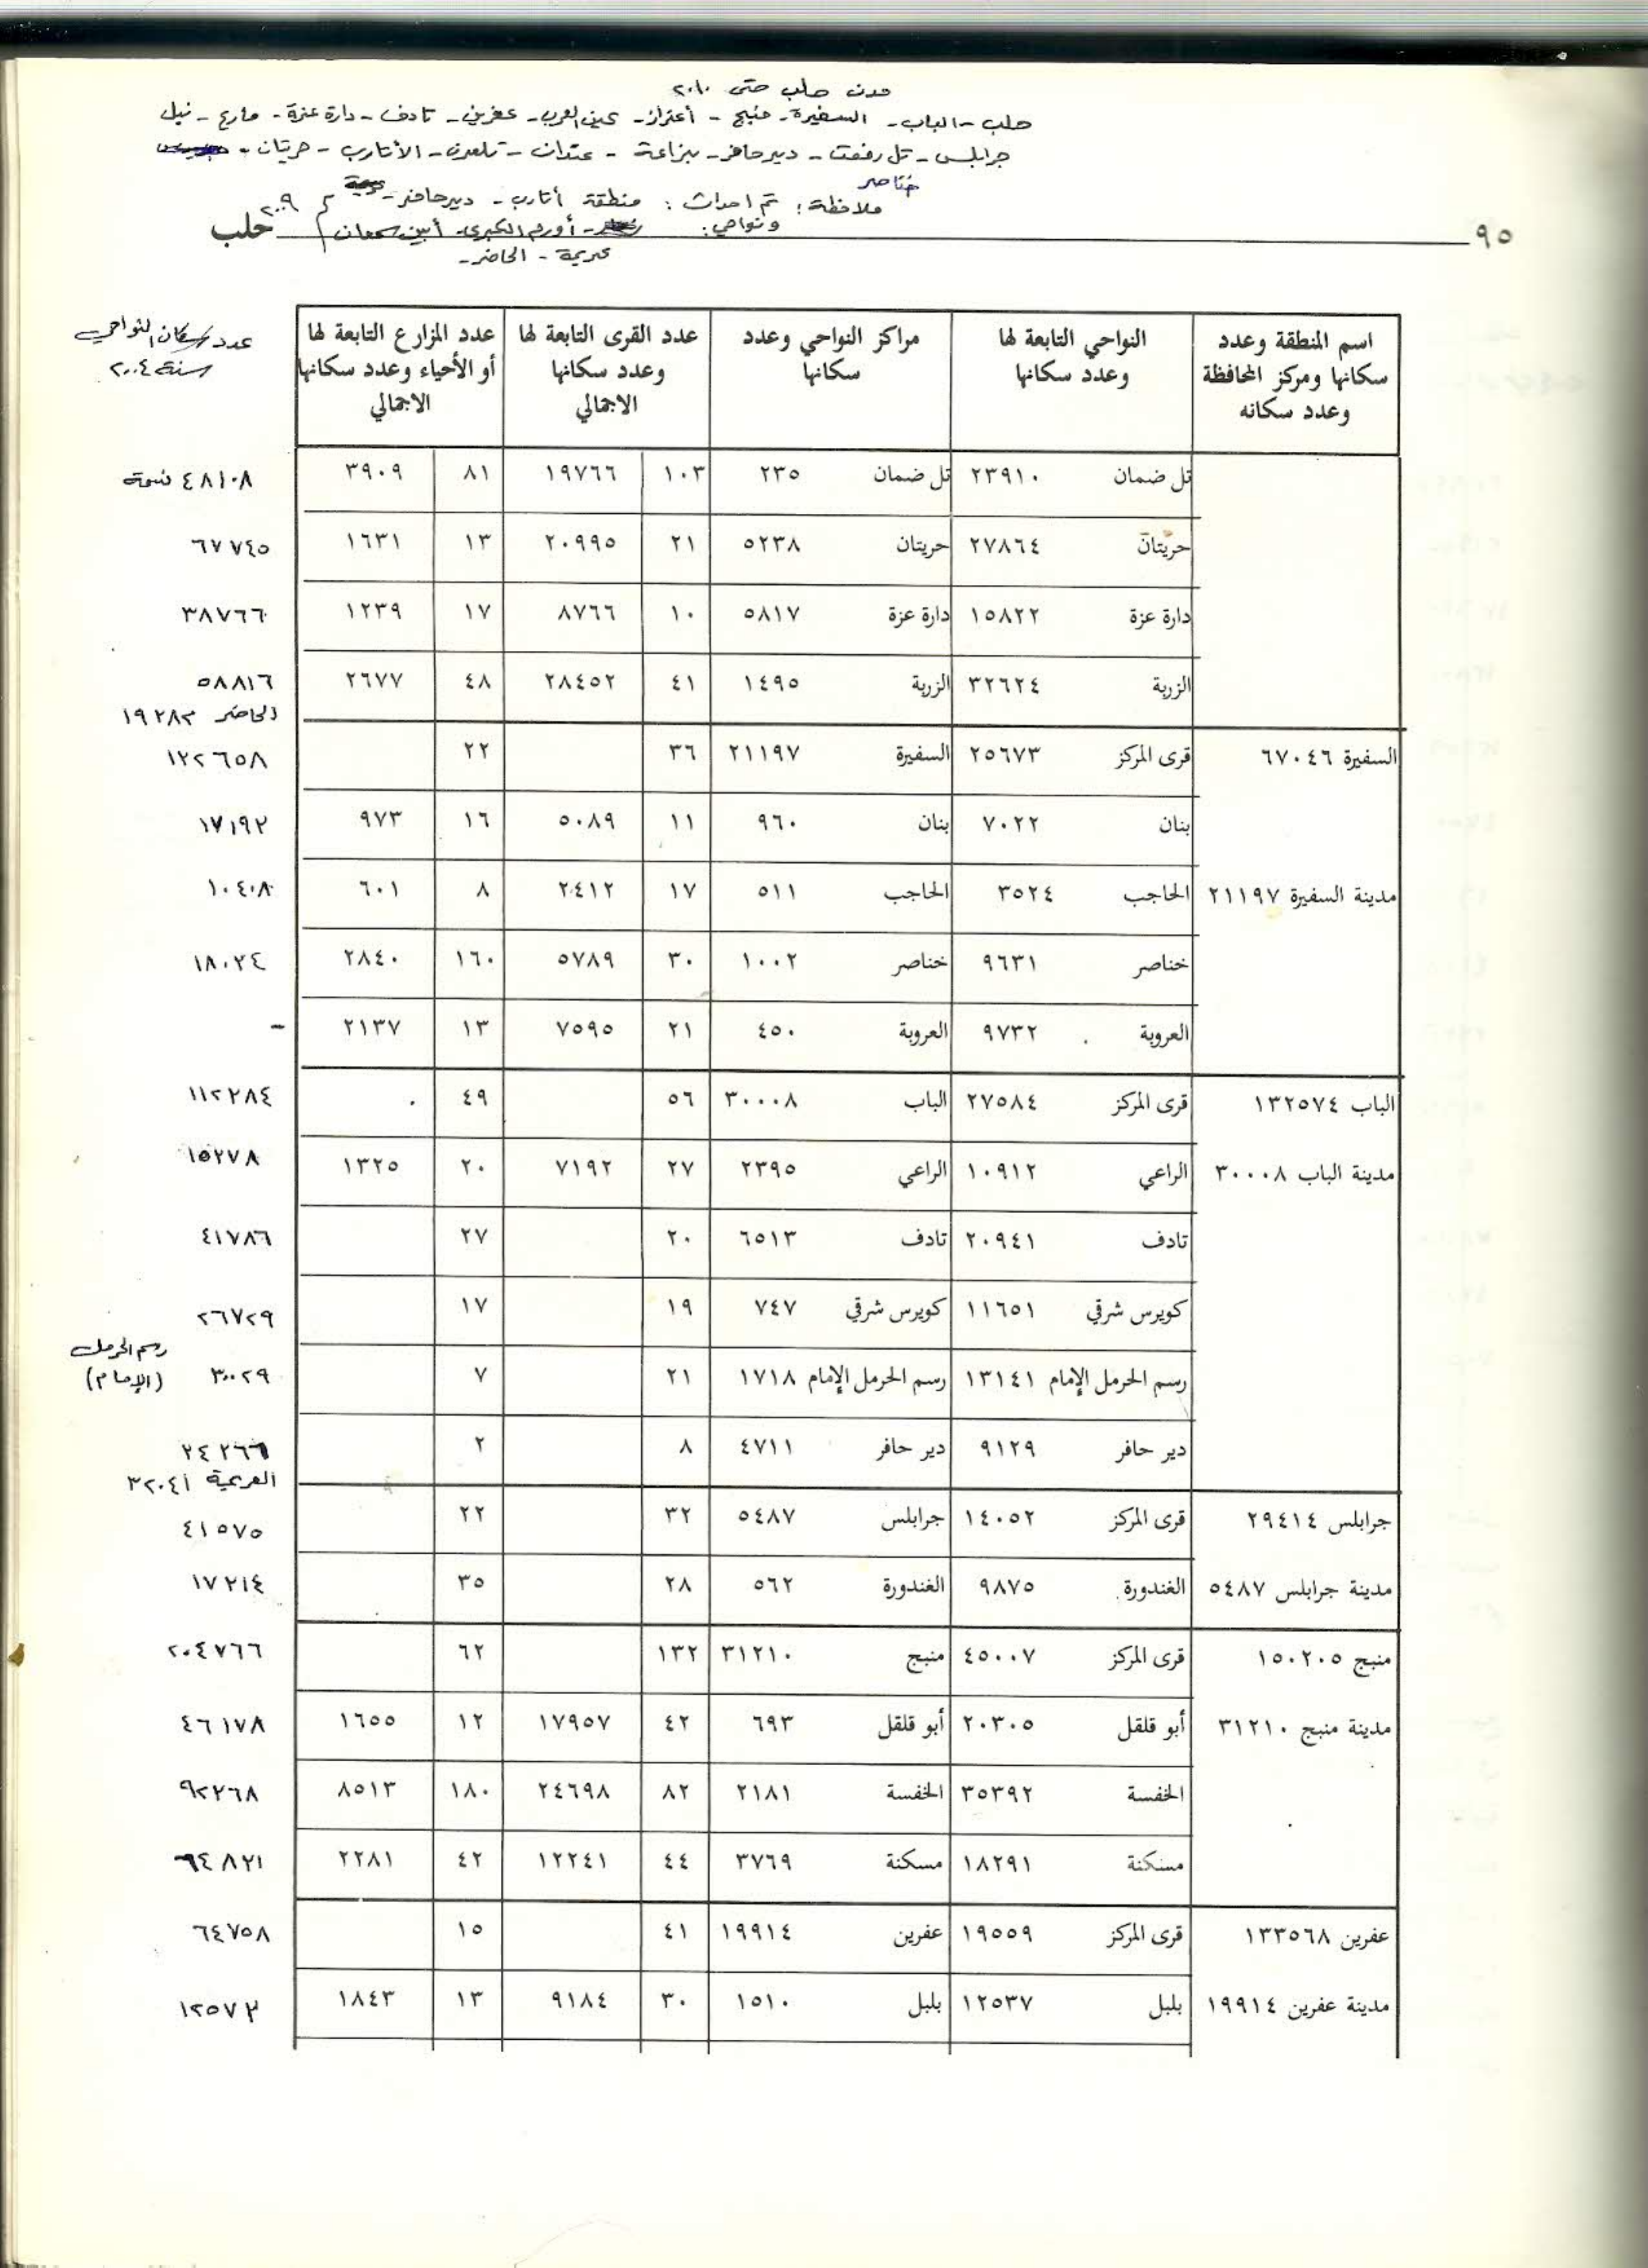 مدن حلب حتى ٢٠١٠
حلب - الباب - السفيرة - منبج - أعزاز - عين العرب - عفرين - تادف - دارة عزة - مارع - نبل
جرابلس - تل رفعت - دير حافر - بزاعة - عندان - تلعرن - الأتارب - حريتان -
خناصر
ملاحظة: تم احداث: منطقة أتارب - دير حافر -
ونواحي: - أورم الكبرى - أبين سمعان ٢٠٠٩
عريمة - الحاضر -
٩٥ حلب
اسم المنطقة وعدد سكانها ومركز المحافظة وعدد سكانه | النواحي التابعة لها وعدد سكانها | مراكز النواحي وعدد سكانها | عدد القرى التابعة لها وعدد سكانها الاجمالي | عدد المزارع التابعة لها أو الأحياء وعدد سكانها الاجمالي | عدد سكان النواحي سنة ٢٠٠٤
تل ضمان ٢٣٩١٠ تل ضمان ٢٣٥ ١٠٣ ١٩٧٦٦ ٨١ ٣٩٠٩ ٤٨١٠٨ نسمة
حريتان ٢٧٨٦٤ حريتان ٥٢٣٨ ٢١ ٢٠٩٩٥ ١٣ ١٦٣١ ٦٧٧٤٥
دارة عزة ١٥٨٢٢ دارة عزة ٥٨١٧ ١٠ ٨٧٦٦ ١٧ ١٢٣٩ ٣٨٧٦٦
الزربة ٣٢٦٢٤ الزربة ١٤٩٥ ٤١ ٢٨٤٥٢ ٤٨ ٢٦٧٧ ٥٨٨١٦
الحاضر ١٩٢٨٣
السفيرة ٦٧٠٤٦ قرى المركز ٢٥٦٧٣ السفيرة ٢١١٩٧ ٣٦ ٢٢ ١٢٢٦٥٨
بنان ٧٠٢٢ بنان ٩٦٠ ١١ ٥٠٨٩ ١٦ ٩٧٣ ١٧١٩٢
مدينة السفيرة ٢١١٩٧ الحاجب ٣٥٢٤ الحاجب ٥١١ ١٧ ٢٤١٢ ٨ ٦٠١ ١٠٤٠٨
خناصر ٩٦٣١ خناصر ١٠٠٢ ٣٠ ٥٧٨٩ ١٦٠ ٢٨٤٠ ١٨٠٢٤
العروبة ٩٧٣٢ العروبة ٤٥٠ ٢١ ٧٥٩٥ ١٣ ٢١٣٧ -
الباب ١٣٢٥٧٤ قرى المركز ٢٧٥٨٤ الباب ٣٠٠٠٨ ٥٦ ٤٩ ١١٢٢٨٤
مدينة الباب ٣٠٠٠٨ الراعي ١٠٩١٢ الراعي ٢٣٩٥ ٢٧ ٧١٩٢ ٢٠ ١٣٢٥ ١٥٢٧٨
تادف ٢٠٩٤١ تادف ٦٥١٣ ٢٠ ٢٧ ٤١٧٨٦
كويرس شرقي ١١٦٥١ كويرس شرقي ٧٤٧ ١٩ ١٧ ٢٦٧٢٩
رسم الحرمل الإمام ١٣١٤١ رسم الحرمل الإمام ١٧١٨ ٢١ ٧ ٣٠٠٢٩ رسم الحرمل (الإمام)
دير حافر ٩١٢٩ دير حافر ٤٧١١ ٨ ٢ ٢٤٢٦٦
العريمة ٣٢٠٤١
جرابلس ٢٩٤١٤ قرى المركز ١٤٠٥٢ جرابلس ٥٤٨٧ ٣٢ ٢٢ ٤١٥٧٥
مدينة جرابلس ٥٤٨٧ الغندورة ٩٨٧٥ الغندورة ٥٦٢ ٢٨ ٣٥ ١٧٢١٤
منبج ١٥٠٢٠٥ قرى المركز ٤٥٠٠٧ منبج ٣١٢١٠ ١٣٢ ٦٢ ٢٠٤٧٦٦
مدينة منبج ٣١٢١٠ أبو قلقل ٢٠٣٠٥ أبو قلقل ٦٩٣ ٤٢ ١٧٩٥٧ ١٢ ١٦٥٥ ٤٦١٧٨
الخفسة ٣٥٣٩٢ الخفسة ٢١٨١ ٨٢ ٢٤٦٩٨ ١٨٠ ٨٥١٣ ٩٢٢٦٨
مسكنة ١٨٢٩١ مسكنة ٣٧٦٩ ٤٤ ١٢٢٤١ ٤٢ ٢٢٨١ ٦٤٨٢١
عفرين ١٣٣٥٦٨ قرى المركز ١٩٥٥٩ عفرين ١٩٩١٤ ٤١ ١٥ ٦٤٧٥٨
مدينة عفرين ١٩٩١٤ بلبل ١٢٥٣٧ بلبل ١٥١٠ ٣٠ ٩١٨٤ ١٣ ١٨٤٣ ١٢٥٧٣